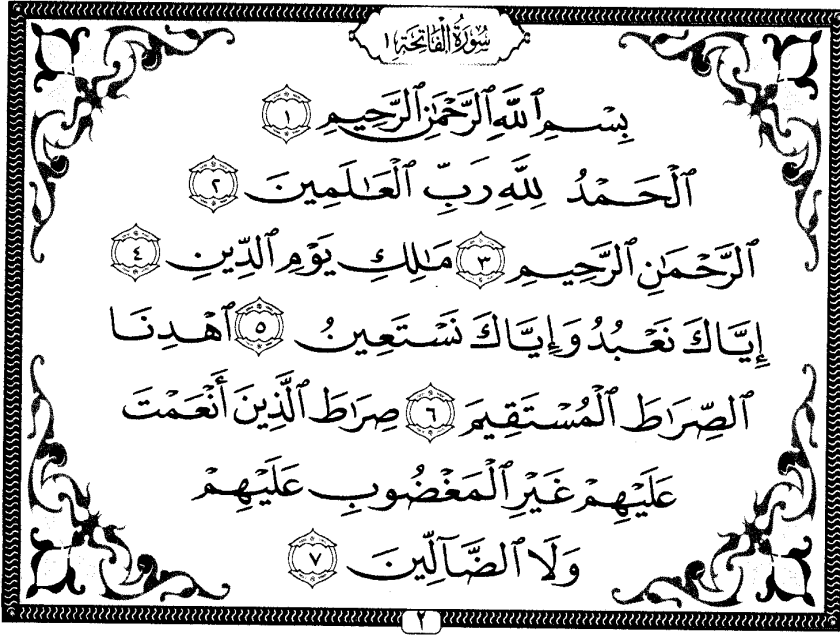 سُورَةُ الْفَاتِحَةِ ١
بِسْمِ ٱللَّهِ ٱلرَّحْمَٰنِ ٱلرَّحِيمِ ١
ٱلْحَمْدُ لِلَّهِ رَبِّ ٱلْعَٰلَمِينَ ٢
ٱلرَّحْمَٰنِ ٱلرَّحِيمِ ٣ مَٰلِكِ يَوْمِ ٱلدِّينِ ٤
إِيَّاكَ نَعْبُدُ وَإِيَّاكَ نَسْتَعِينُ ٥ ٱهْدِنَا
ٱلصِّرَٰطَ ٱلْمُسْتَقِيمَ ٦ صِرَٰطَ ٱلَّذِينَ أَنْعَمْتَ
عَلَيْهِمْ غَيْرِ ٱلْمَغْضُوبِ عَلَيْهِمْ
وَلَا ٱلضَّآلِّينَ ٧
٢